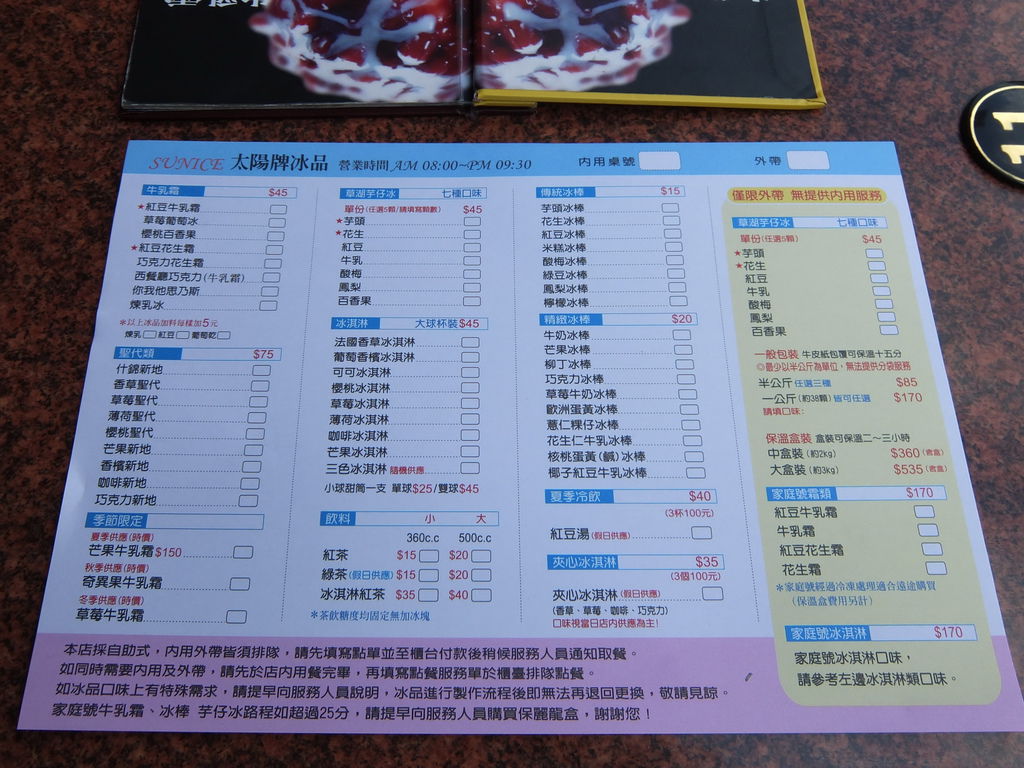 SUNICE 太陽牌冰品 營業時間 AM 08:00~PM 09:30 內用桌號 外帶
牛乳霜 $45
★紅豆牛乳霜
草莓葡萄冰
櫻桃百香果
★紅豆花生霜
巧克力花生霜
西餐廳巧克力(牛乳霜)
你我他思乃斯
煉乳冰
*以上冰品加料每樣加5元
煉乳 紅豆 葡萄乾
聖代類 $75
什錦新地
香草聖代
草莓聖代
薄荷聖代
櫻桃聖代
芒果新地
香檳新地
咖啡新地
巧克力新地
季節限定
夏季供應(時價)
芒果牛乳霜$150
秋季供應(時價)
奇異果牛乳霜
冬季供應(時價)
草莓牛乳霜
草湖芋仔冰 七種口味
單份(任選5顆/請填寫顆數) $45
★芋頭
★花生
紅豆
牛乳
酸梅
鳳梨
百香果
冰淇淋 大球杯裝$45
法國香草冰淇淋
葡萄香檳冰淇淋
可可冰淇淋
櫻桃冰淇淋
草莓冰淇淋
薄荷冰淇淋
咖啡冰淇淋
芒果冰淇淋
三色冰淇淋 隨機供應
小球甜筒一支 單球$25/雙球$45
飲料 小 大
360c.c 500c.c
紅茶 $15 $20
綠茶(假日供應) $15 $20
冰淇淋紅茶 $35 $40
*茶飲糖度均固定無加冰塊
傳統冰棒 $15
芋頭冰棒
花生冰棒
紅豆冰棒
米糕冰棒
酸梅冰棒
綠豆冰棒
鳳梨冰棒
檸檬冰棒
精緻冰棒 $20
牛奶冰棒
芒果冰棒
柳丁冰棒
巧克力冰棒
草莓牛奶冰棒
歐洲蛋黃冰棒
薏仁粿仔冰棒
花生仁牛乳冰棒
核桃蛋黃(鹹)冰棒
椰子紅豆牛乳冰棒
夏季冷飲 $40
(3杯100元)
紅豆湯(假日供應)
夾心冰淇淋 $35
(3個100元)
夾心冰淇淋(假日供應)
(香草、草莓、咖啡、巧克力)
口味視當日店內供應為主!
僅限外帶 無提供內用服務
草湖芋仔冰 七種口味
單份(任選5顆) $45
★芋頭
★花生
紅豆
牛乳
酸梅
鳳梨
百香果
一般包裝 牛皮紙包覆可保溫十五分
◎最少以半公斤為單位,無法提供分袋服務
半公斤 任選三種 $85
一公斤(約38顆)皆可任選 $170
請填口味:
保溫盒裝 盒裝可保溫二~三小時
中盒裝(約2kg) $360(含盒)
大盒裝(約3kg) $535(含盒)
家庭號霜類 $170
紅豆牛乳霜
牛乳霜
紅豆花生霜
花生霜
*家庭號經過冷凍處理適合遠途購買
(保溫盒費用另計)
家庭號冰淇淋 $170
家庭號冰淇淋口味,
請參考左邊冰淇淋類口味。
本店採自助式,內用外帶皆須排隊,請先填寫點單並至櫃台付款後稍候服務人員通知取餐。
如同時需要內用及外帶,請先於店內用餐完畢,再填寫點餐服務單於櫃臺排隊點餐。
如冰品口味上有特殊需求,請提早向服務人員說明,冰品進行製作流程後即無法再退回更換,敬請見諒。
家庭號牛乳霜、冰棒 芋仔冰路程如超過25分,請提早向服務人員購買保麗龍盒,謝謝您!
11